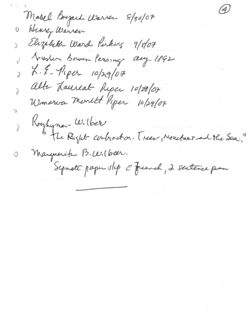 4
Mabel Bogard Warren 8/30/07
Henry Warren
Elizabeth Ward Perkins 9/1/07
Bowen Persing Aug. 1892
L. E. Piper 10/29/07
Alta Laureat Piper 10/28/07
Minerva Merritt Piper 10/29/07
Wilber
the Right contraction. Trees, Mountains and the Sea."
Marguerite B. Wilber.
Separate paper slip c French, 2 sentence